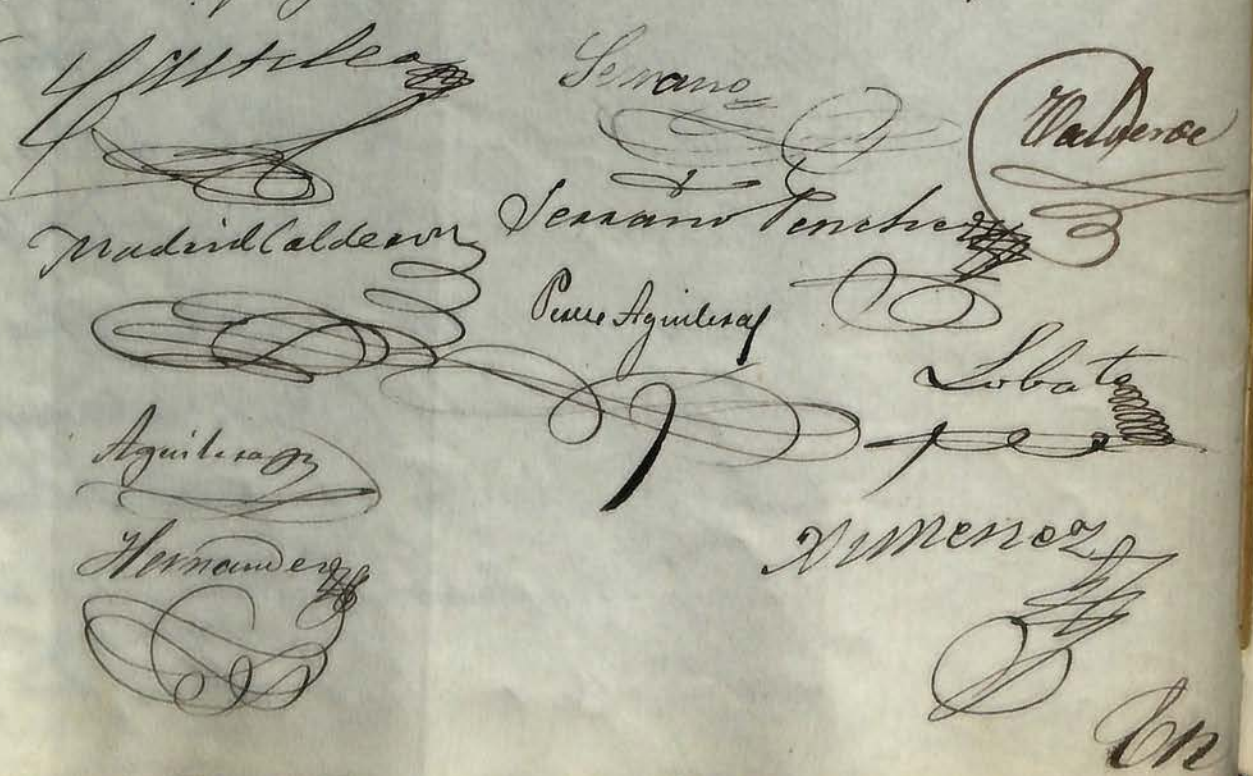 Serrano
Valverde
Madrid Calderon
Serrano
Perez Aguilera
Lobato
Aguilera
Hernandez
Ximenez
En